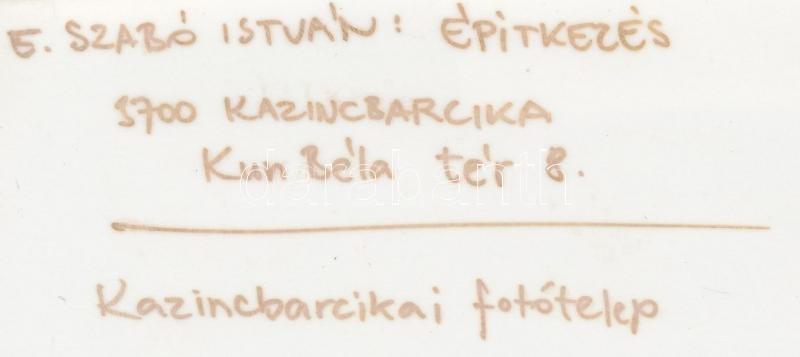 E. SZABÓ ISTVÁN: ÉPÍTKEZÉS
3700 KAZINCBARCIKA
Kun Béla tér 8.
darabanth
Kazincbarcikai fotótelep